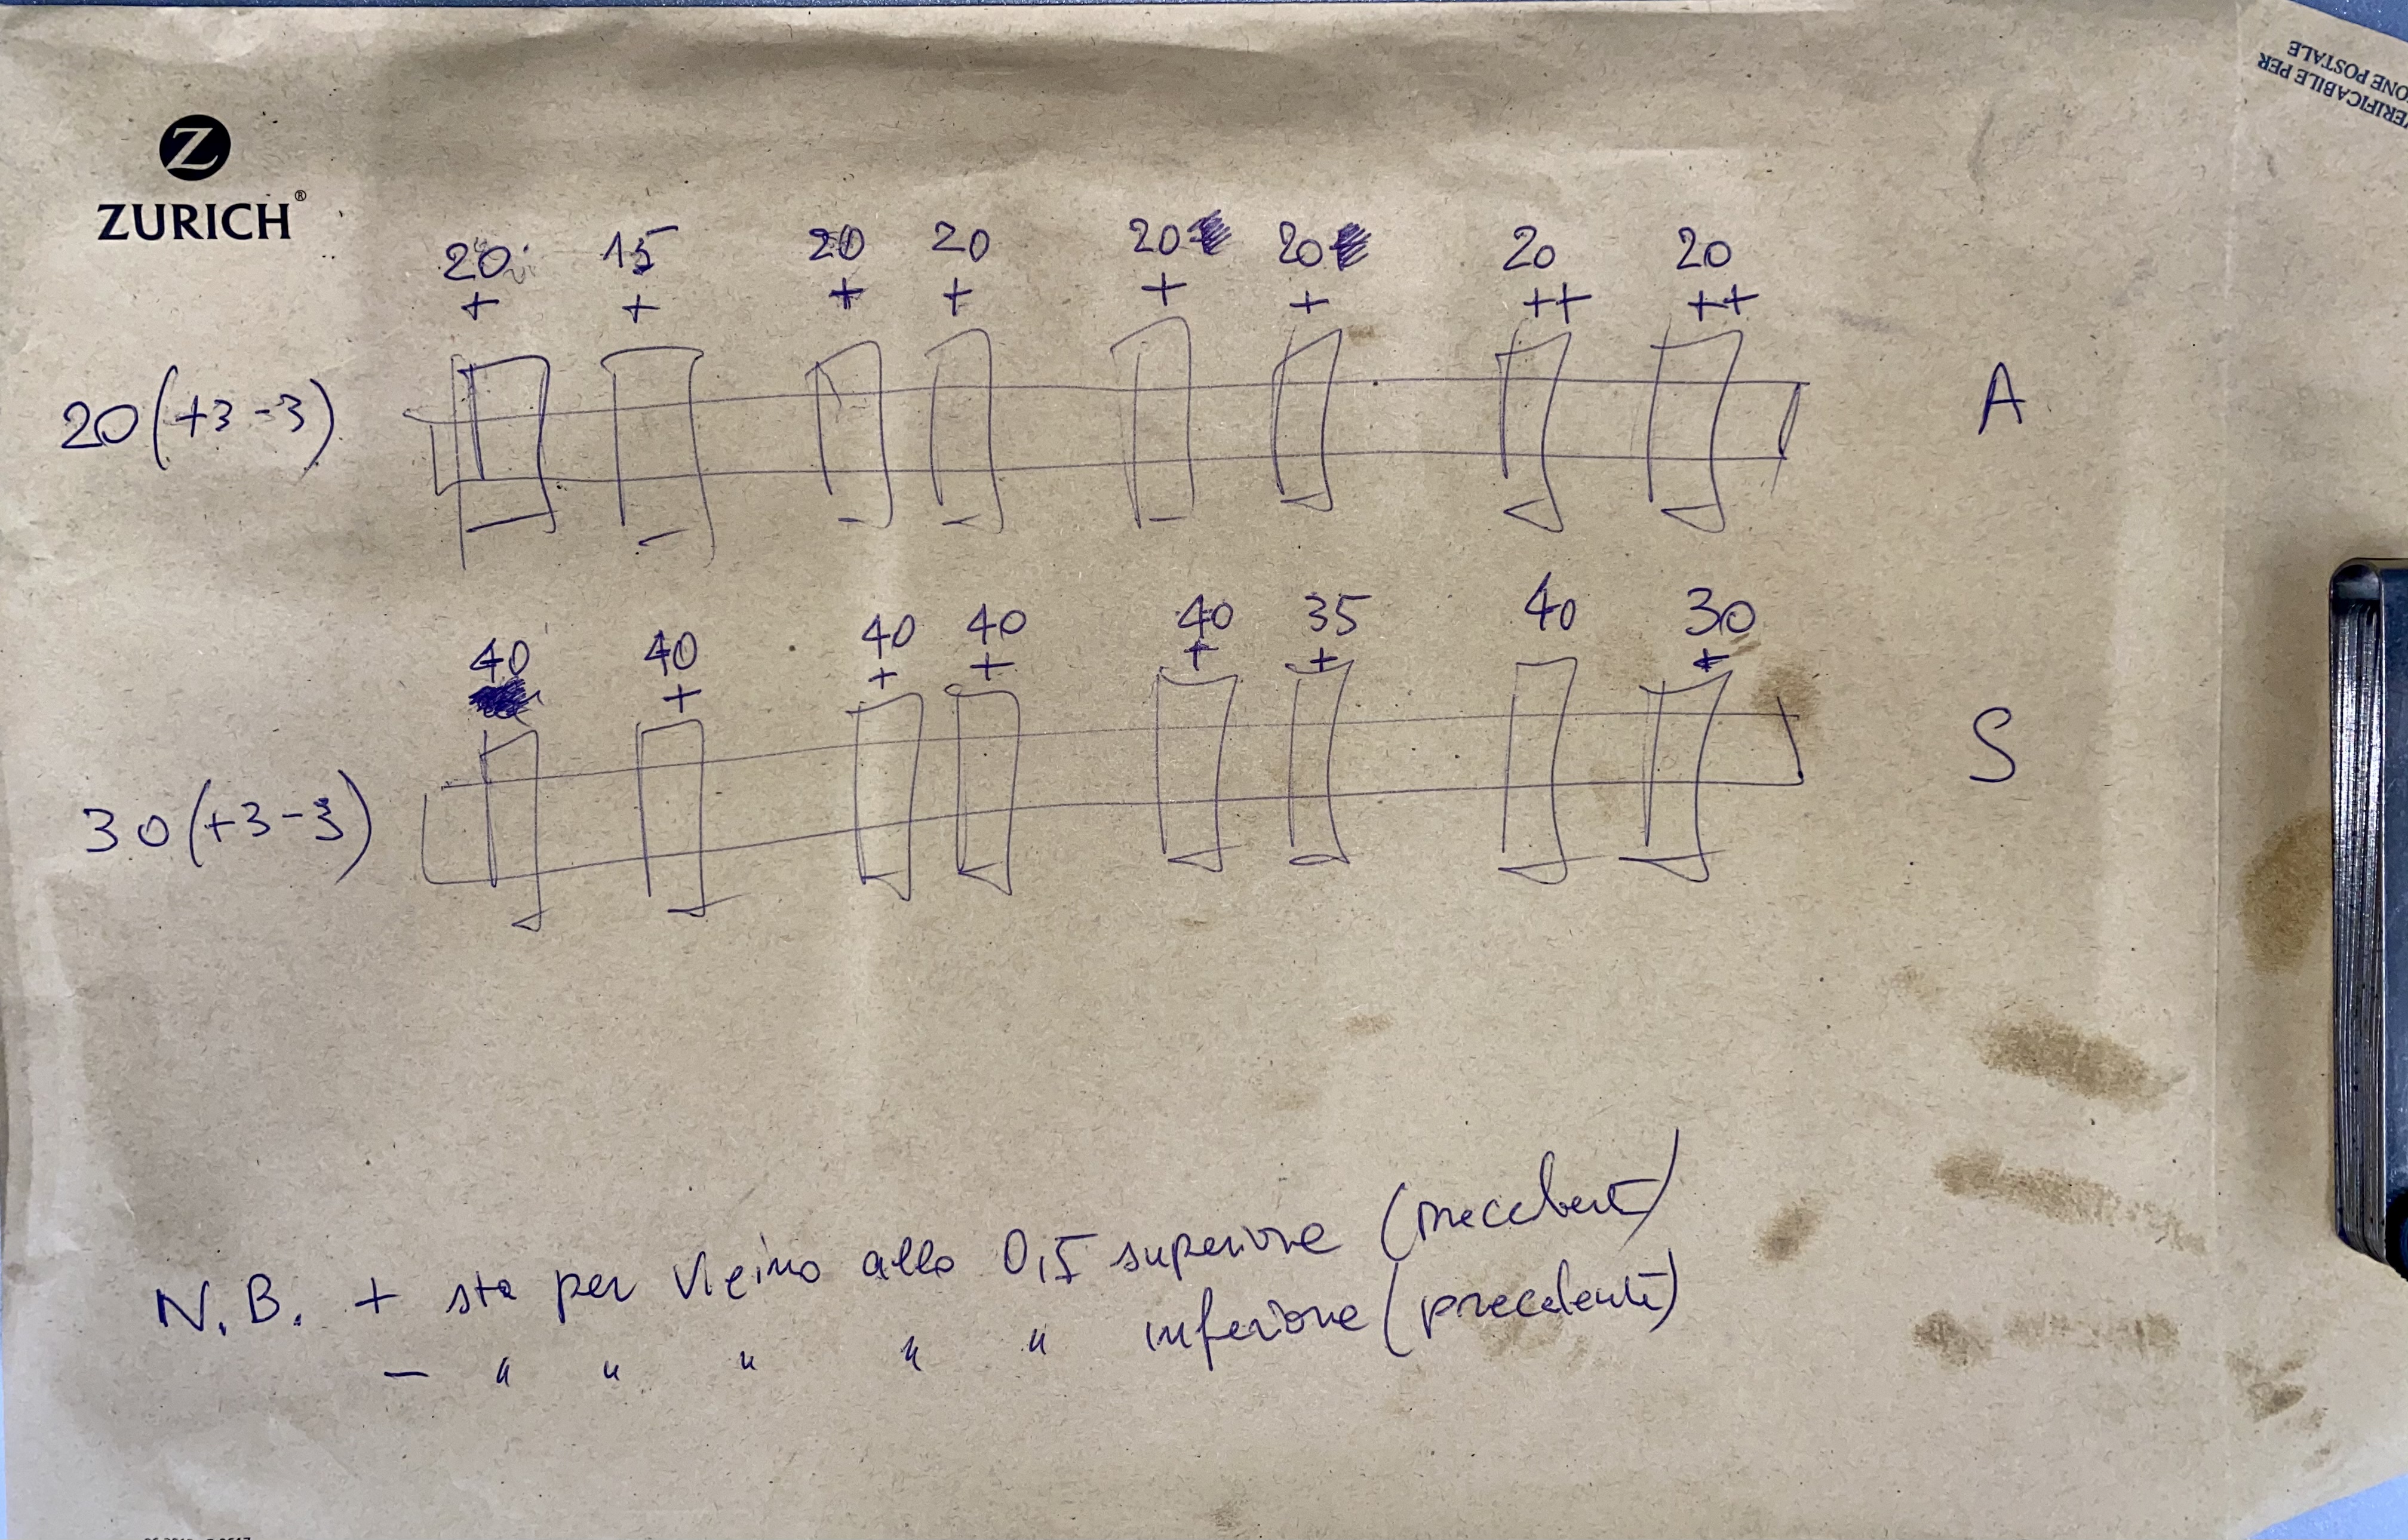 ZURICH®
VERIFICABILE PER
ONE POSTALE
20 15 20 20 20 20 20 20
+ + + + + + ++ ++
20(+3-3) A
40 40 40 40 40 35 40 30
+ + + + + +
30(+3-3) S
N.B. + sta per vicino allo 0,5 superiore
- " " " " " inferiore (precedente)